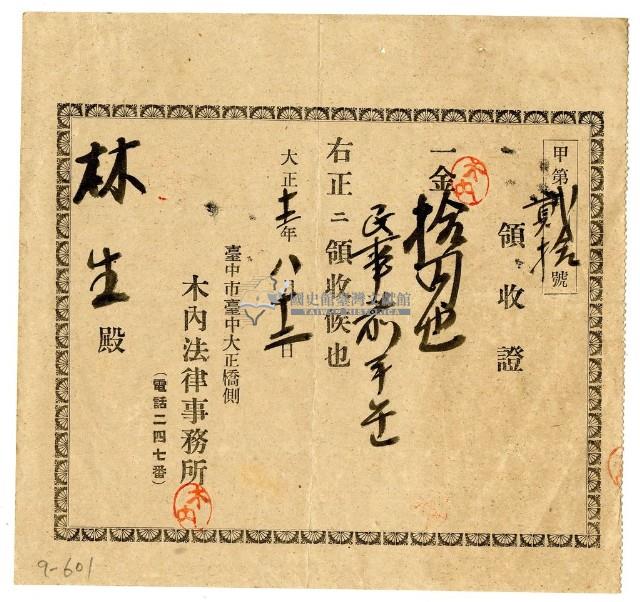 甲第貳拾號
領收證
一金拾円也
民事前手込
右正ニ領收候也
大正十一年八月十二日
臺中市臺中大正橋側
木內法律事務所
(電話二四七番)
林生殿
木内
木内
國史館臺灣文獻館
TAIWAN HISTORICA
9-601